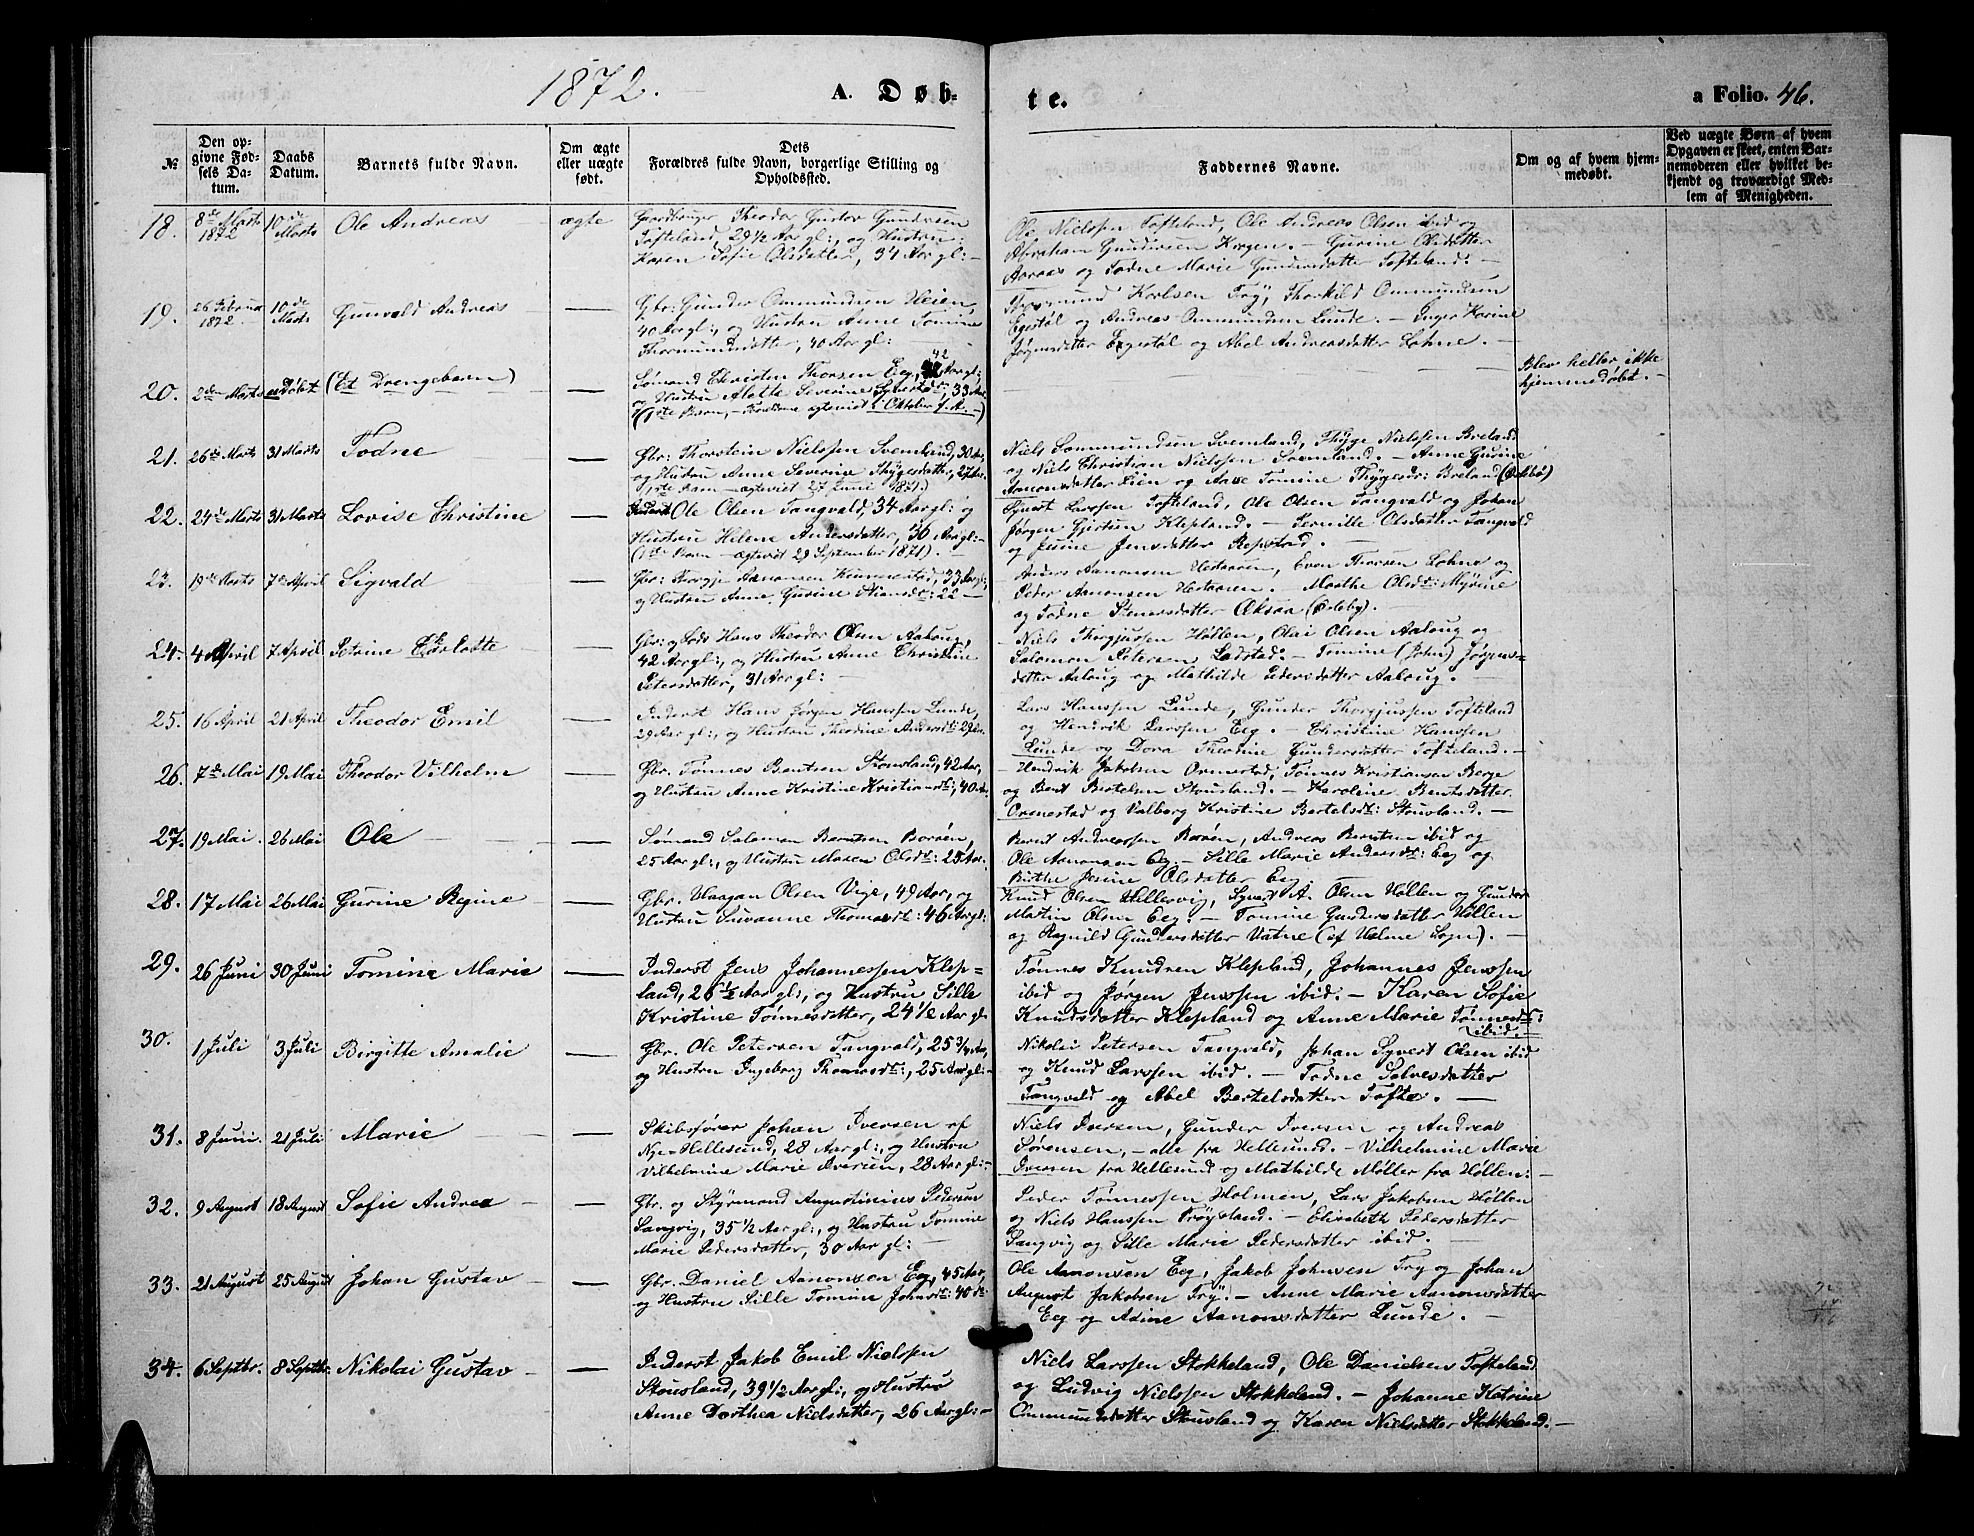 1872.
A. Døb-
te.
a Folio. 46.
№
Den op-
givne Fød-
sels Da-
tum.
Daabs
Datum.
Barnets fulde Navn.
Om ægte
eller uægte
født.
Dets
Forældres fulde Navn, borgerlige Stilling og
Opholdssted.
Faddernes Navne.
Om og af hvem hjem-
medøbt.
Ved uægte Børn af hvem
Opgaven er skeet, enten Bar-
nemoderen eller hvilket be-
kjendt og troværdigt Med-
lem af Menigheden.
18. 8de Marts 1872 10de Marts Ole Andreas ægte
Gaardbruger Theodor Gustav Gundersen
Tofteland, 29 1/2 Aar gl:, og Hustru
Karen Sofie Olsdatter, 34 Aar gl:
Ole Nielssen Tofteland, Ole Andreas Olsen ibid og
Abraham Gundersen Kragen. – Gurine Olsdatter
Aaraas og Todne Marie Gundersdatter Tofteland. –
19. 26 Februar 1872. 10de Marts Gunvald Andreas —
Gbr: Gunder Ommundsen Heien,
40 Aar gl:, og Hustru Anne Tomine
Thormundsdatter, 40 Aar gl:
Karlsen Try, Thorkild Ommundsen
Egestøl og Andreas Ommundsen Lunde. – Inger Karine
Jørgensdatter Egestøl og Abel Andreasdatter Lohne. –
20. 2den Marts udøbt (Et Drengebarn) —
Sømand Christen Thorsen Eeg, 42 Aar gl:
og Hustru Alette Severine 33 Aar
(1ste Barn, – Forældrene ægteviet i Oktober f. A. –)
Blev heller ikke
hjemmedøbt. –
21. 26de Marts 31 Marts Todne —
Gbr: Thorstein Nielssen Svemland, 30 Aar,
og Hustru Anne Severine Thygesdatter, 27 Aar.
(1ste Barn – ægteviet 27 Juni 1871.)
Niels Sommundsen Svemland, Thyge Nielssen Breland
og Niels Christian Nielssen Svemland. – Anne Gurine
Aanonsdatter Lien og Aase Tomine Thygesdr: Breland
22. 24de Marts 31 Marts Lovise Christine —
Ole Olsen Tangvald, 34 Aar gl: og
Hustru Helene Andersdatter, 36 Aar gl: –
(1ste Barn – ægteviet 29 September 1871). –
Larssen Tofteland, Ole Olsen Tangvald og Johan
Jørgen Gjertsen Klepland. – Pernille Olsdatter Tangvald
og Jensine Jensdatter Repstad. –
23. 19de Marts 7de April Sigvald —
Gbr: Aanonsen 33 Aar gl:,
og Hustru Anne Gurine 22 –
Anders Aanonsen Hestaaen, Even Thorsen Lohne og
Peder Aanonsen Hestaaen. – Marthe Olsdtr: Myrene
og Todne Stenersdatter
24. 4 April 7 April Petrine Charlotte —
Gbr: og Hans Theodor Olsen Aaloug,
42 Aar gl:, og Hustru Anne Christine
Petersdatter, 31 Aar gl: –
Niels Thorgjussen Høllen, Olai Olsen Aaloug og
Salomon Petersen Ladstad. – Tomine (John) Jørgens-
datter Aaloug og Mathilde Pedersdatter Aaloug.
25. 16 April 21 April Theodor Emil —
Inderst Hans Jørgen Hanssen Lunde,
29 Aar gl:, og Hustru Theodine Andersdtr: 29
Lars Hanssen Lunde, Gunder Thorgjussen Tofteland
og Hendrik Larssen Eeg. – Christine Hanssen
Lunde og Dora Theodine Gundersdatter Tofteland. –
26. 7de Mai 19 Mai Theodor Vilhelm —
Gbr. Tønnes Bentsen Stousland, 42 Aar,
og Hustru Anne Kristine Kristiansdtr:, 40
Hendrik Jakobsen Ormestad, Tønnes Kristiansen Berge
og Bent Bertelsen Stousland. – Karoline Bentsdatter
Ormestad og Valborg Kristine Bertelsdtr: Stousland. –
27. 19 Mai. 26 Mai Ole —
Sømand Salomon Berntsen Borøen,
25 Aar gl:, og Hustru Maren Olsdtr: 25 Aar.
Bernt Andreassen Borøen, Andreas Berntsen ibid og
Ole Aanonsen Eeg. – Sille Marie Andersdtr: Eeg og
Birthe Jesine Olsdatter Eeg. –
28. 17 Mai 26 Mai Gurine Regine —
Gbr. Haagan Olsen Vige, 49 Aar, og
Hustru Susanne Thomasdtr: 46 Aar gl:
Knud Olsen Hellersvig, Syvert A. Olsen Høllen og Gunder
Martin Olsen Eeg. – Tomine Gundersdatter Høllen
og Ragnild Gundersdatter Vatne (af Halme Sogn). –
29. 26 Juni 30 Juni Tomine Marie —
Inderst Jens Johannessen Klep-
land, 26 1/2 Aar gl:, og Hustru Sille
Kristine Tønnesdatter, 24 1/2 Aar gl.
Tønnes Knudsen Klepland, Johannes Jenssen
ibid og Jørgen Jenssen ibid. – Karen Sofie
Knudsdatter Klepland og Anne Marie Tønnesdtr:
ibid. –
30. 1 Juli 3 Juli Birgitte Amalie —
Gbr. Ole Petersen Tangvald, 25 3/4 Aar,
og Hustru Ingeborg Thomasdtr:, 25 Aar gl: –
Nikolai Petersen Tangvald, Johan Syvert Olsen ibid
og Knud Larssen ibid. – Todne Salvesdatter
Tangvald og Abel Bertelsdatter Tofte. –
31. 8 Juni. 21 Juli Marie —
Skibsfører Johan Iversen af
Ny-Hellesund, 28 Aar gl:, og Hustru
Vilhelmine Marie Iversen, 28 Aar gl: –
Niels Iversen, Gunder Iversen og Andreas
Sørensen, – alle fra Hellesund. – Vilhelmine Marie
Iversen fra Hellesund og Mathilde Møller fra Høllen: –
32. 9 August 18 August Sofie Andrea —
Gbr. og Styrmand Augustinius Pedersen
Langvig, 35 1/2 Aar gl:, og Hustru Tomine
Marie Pedersdatter, 30 Aar gl: –
Peder Tønnessen Holmen, Lars Jakobsen Høllen
og Niels Hanssen Trøysland. – Elisabeth Pedersdatter
Langvig og Sille Marie Pedersdatter ibid. –
33. 21 August 25 August Johan Gustav —
Gbr. Daniel Aanonsen Eeg, 45 Aar,
og Hustru Sille Tomine Johnsdtr: 40
Ole Aanonsen Eeg, Jakob Johnsen Try og Johan
August Jakobsen Try. – Anne Marie Aanonsdatter
Eeg og Adine Aanonsdatter Lunde. –
34. 6 Septbr. 8 Septbr. Nikolai Gustav —
Inderst Jakob Emil Nielssen
Stousland, 39 1/2 Aar gl:, og Hustru
Anne Dorthea Nielsdatter, 26 Aar gl: –
Niels Larssen Stokkeland, Ole Danielsen Tofteland
og Ludvig Nielssen Stokkeland. – Johanne Katrine
Ommundsdatter Stousland og Karen Nielsdatter Stokkeland. –